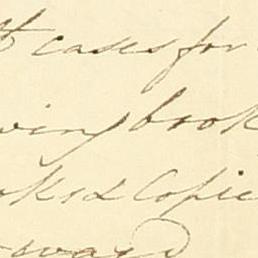 cases for
wing book
oks & Copie
ward